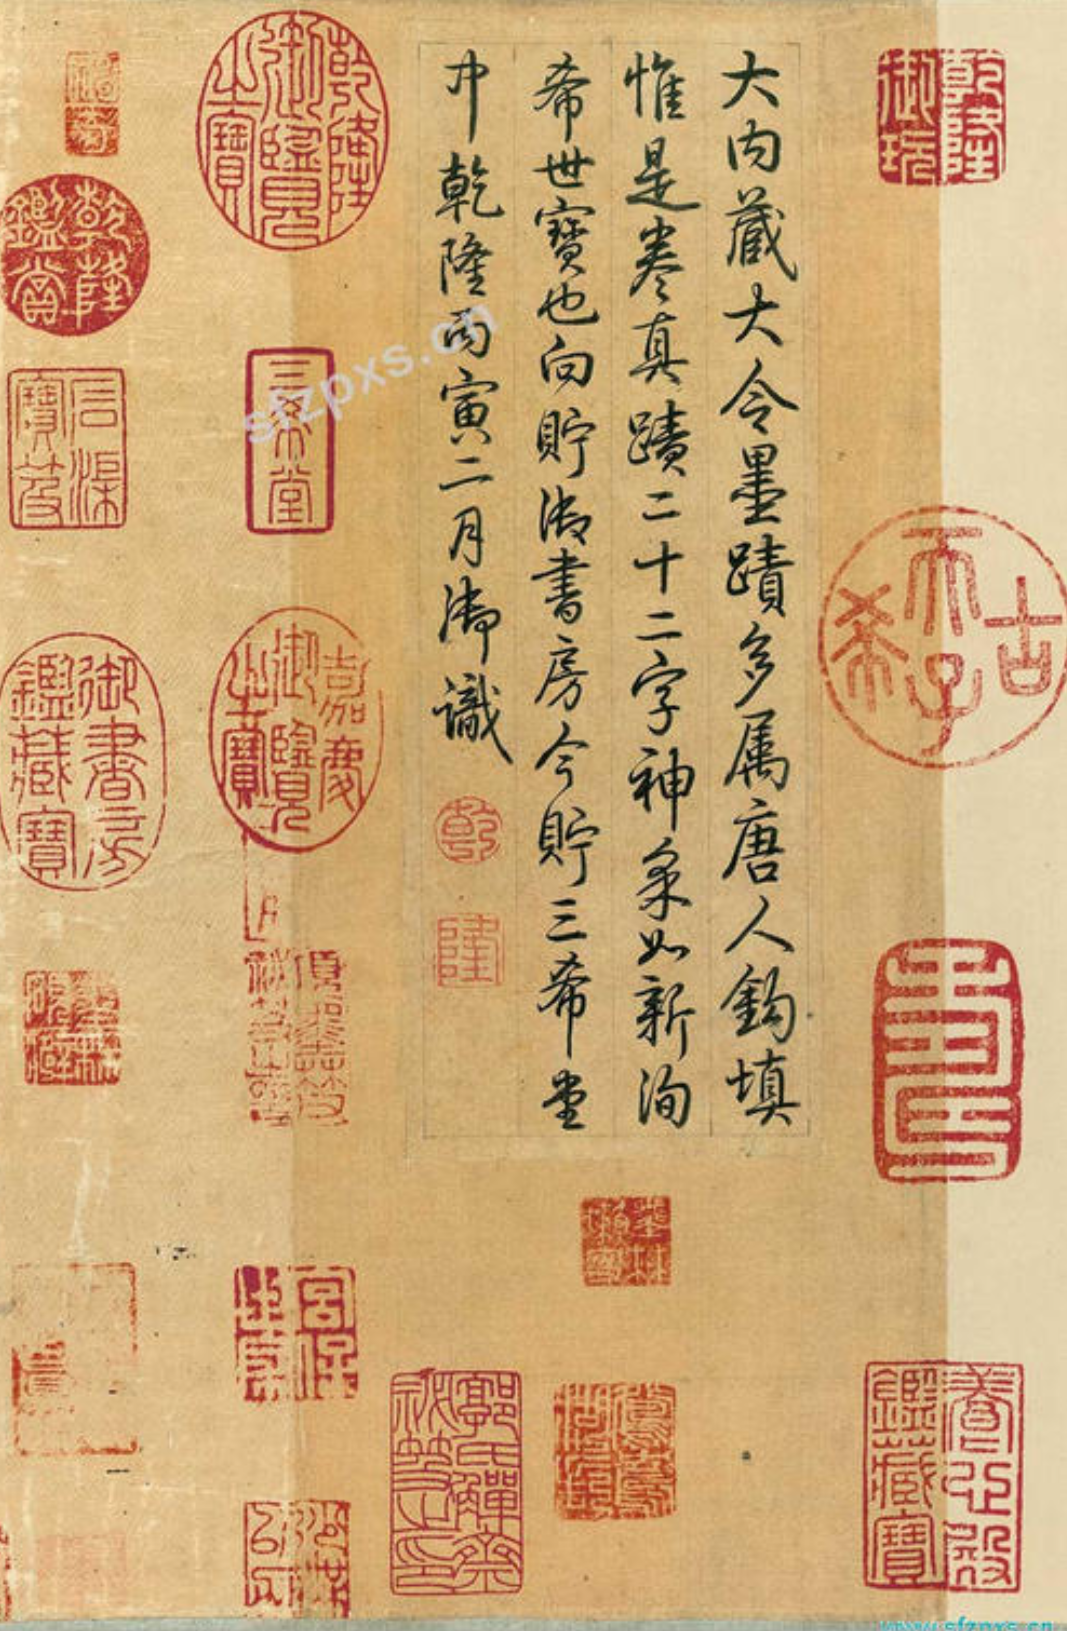 大内藏大令墨蹟多属唐人鈎填
惟是卷真蹟二十二字神采如新洵
希世寳也向貯御書房今貯三希堂
中乾隆丙寅二月御識
乾
隆
乾隆
御玩
古
希
天子
養心殿
鑑藏寶
乾隆
御覽
之寶
三希堂
嘉慶
御覽
之寶
宮保
郭氏觶齋
秘笈之印
乾隆
鑑賞
石渠
寶笈
御書房
鑑藏寶
sfzpxs.cn
www.sfzpxs.cn